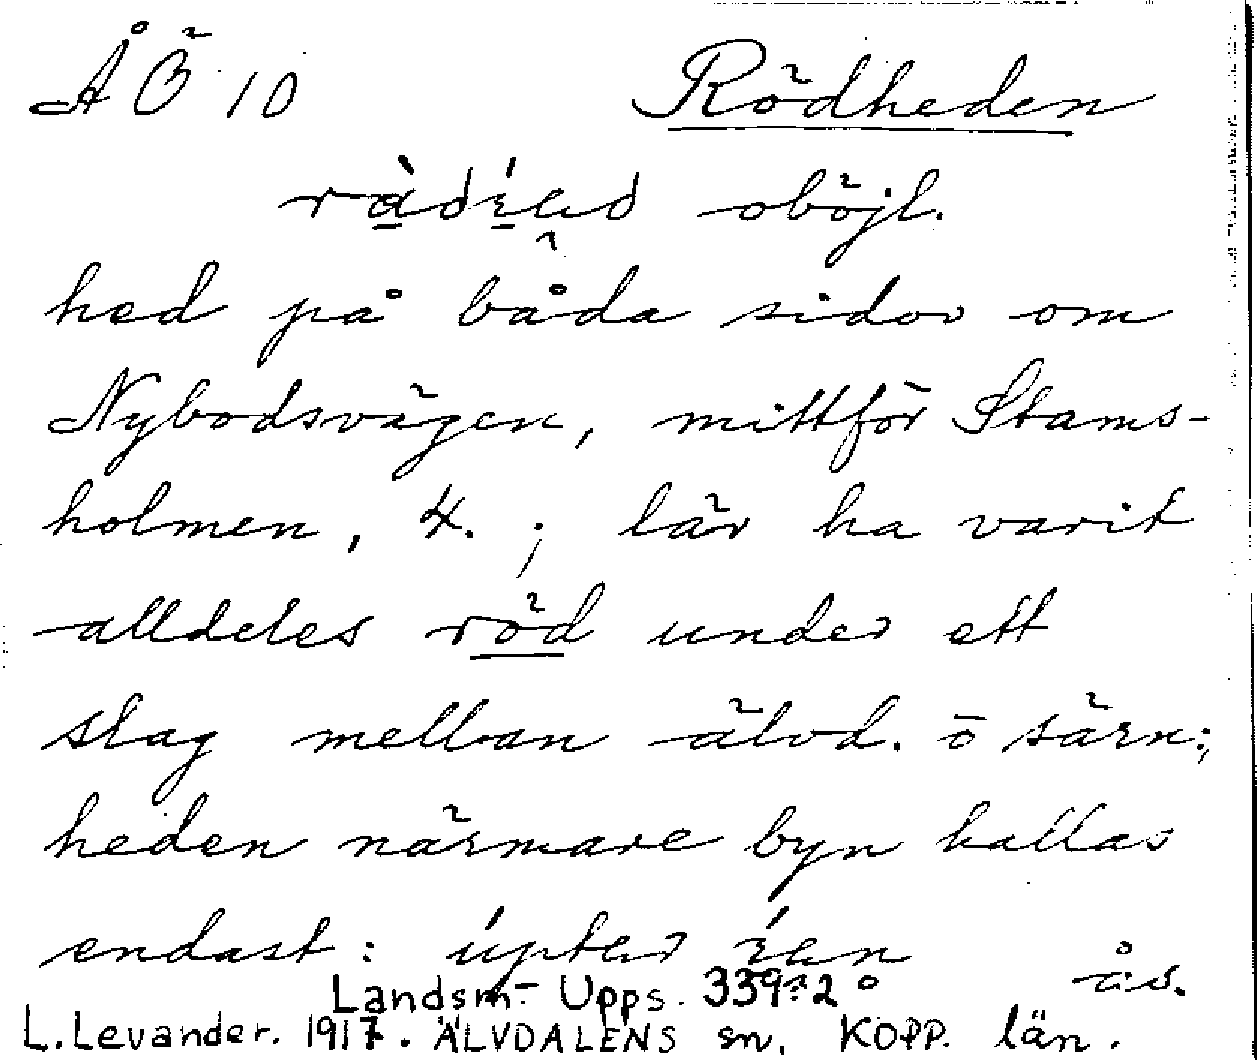 ÅÖ 10 Rödheden
oböjl.
hed på båda sidor om
Nybodsvägen, mittför Stams-
holmen, 4. ; lär ha varit
alldeles röd under ett
slag mellan älvd. o särn:,
heden närmare byn kallas
endast:
ås.
Landsm. Upps. 339:2
L. Levander. 1917. ÄLVDALENS sn. KOPP. län.